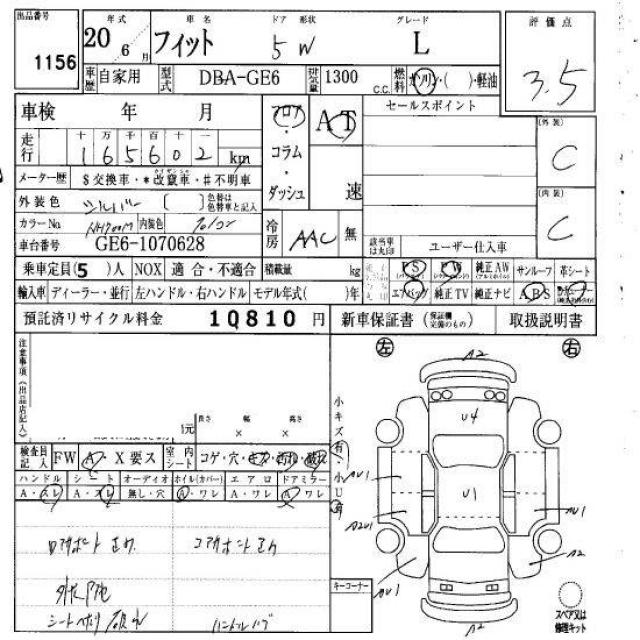 出品番号 年式 車名 ドア 形状 グレード 評価点
1156 20 6月 フィット 5 W L 3.5
車歴 自家用 型式 DBA-GE6 排気量 1300 C.C. 燃料 ガソリン・( )・軽油
車検 年 月 フロア AT セールスポイント
走行 十 万 千 百 十 一 コラム (外装)
165602 km ダッシュ 速 C
メーター歴 $交換車・*改竄車・#不明車 (内装)
外装色 シルバー 〔 〕 色替で色替車と記入 C
カラーNo NH700M 内装色 冷房 AAC 無
車台番号 GE6-1070628 該当車は丸印 ユーザー仕入車
乗車定員(5)人 NOX 適合・不適合 積載量 kg PS PW 純正AW サンルーフ 革シート
輸入車 ディーラー・並行 左ハンドル・右ハンドル モデル年式( )年 エアバッグ 純正TV 純正ナビ ABS
預託済リサイクル料金 10810 円 新車保証書 (保証欄完備のもの) 取扱説明書
注意事項(出品店記入) 左 右
A2
長さ 幅 高さ 小キズ有・小U有
1元 × × U4
検査員記入 FW A X 要ス 室内シート コゲ・穴・キズ・汚れ・破れ
ハンドル シート オーディオ ホイル(カバー) エアロ ドアミラー AU1 U1
A・スレ A・スレ 無し・穴 A・ワレ A・ワレ A ワレ
A2U1 AU1
A2
AU1
キーコーナー
A2
スペア又は修理キット